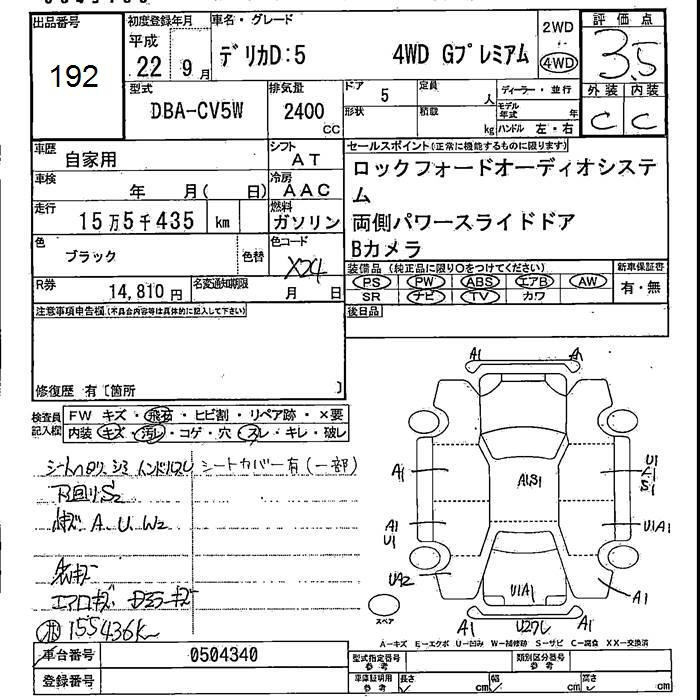 出品番号 初度登録年月 車名・グレード 2WD 評価点
192 平成 22 9月 デリカD:5 4WD Gプレミアム 4WD 3.5
型式 排気量 ドア 5 定員 人 ディーラー・並行 外装 内装
DBA-CV5W 2400 CC 形状 積載 kg モデル年式 年 ハンドル 左・右 C C
車歴 自家用 シフト AT セールスポイント(正常に機能するものに限ります)
車検 年 月( 日) 冷房 AAC ロックフォードオーディオシステ
ム
走行 15万5千435 km 燃料 ガソリン 両側パワースライドドア
色 ブラック 色替 色コード X24 Bカメラ
装備品(純正品に限り○をつけてください) 新車保証書
R券 14,810円 名変通知期限 月 日 PS PW ABS エアB AW 有・無
SR ナビ TV カワ
注意事項申告欄(不具合内容等は具体的に記入して下さい) 後日品
修復歴 有〔箇所 〕
検査員記入欄 FW キズ・飛石・ヒビ割・リペア跡・×要
内装 キズ・汚レ・コゲ・穴・スレ・キレ・破レ
シートヘタリ、シミ ハンドルスレ シートカバー有(一部)
下回りS2
A.U.W2
エアロキズ
155436K
A1 A1
A1 A1S1 U1 A1 S1
A1 U1 U1A1
UA2 U1A1 A1
スペア A1 A1
A-キズ E-エクボ U-凹み W-補修跡 S-サビ C-腐食 XX-交換済
車台番号 0504340 型式指定番号 参考 類別区分番号 参考
登録番号 車庫証明用 参考 長さ cm 幅 cm 高さ cm